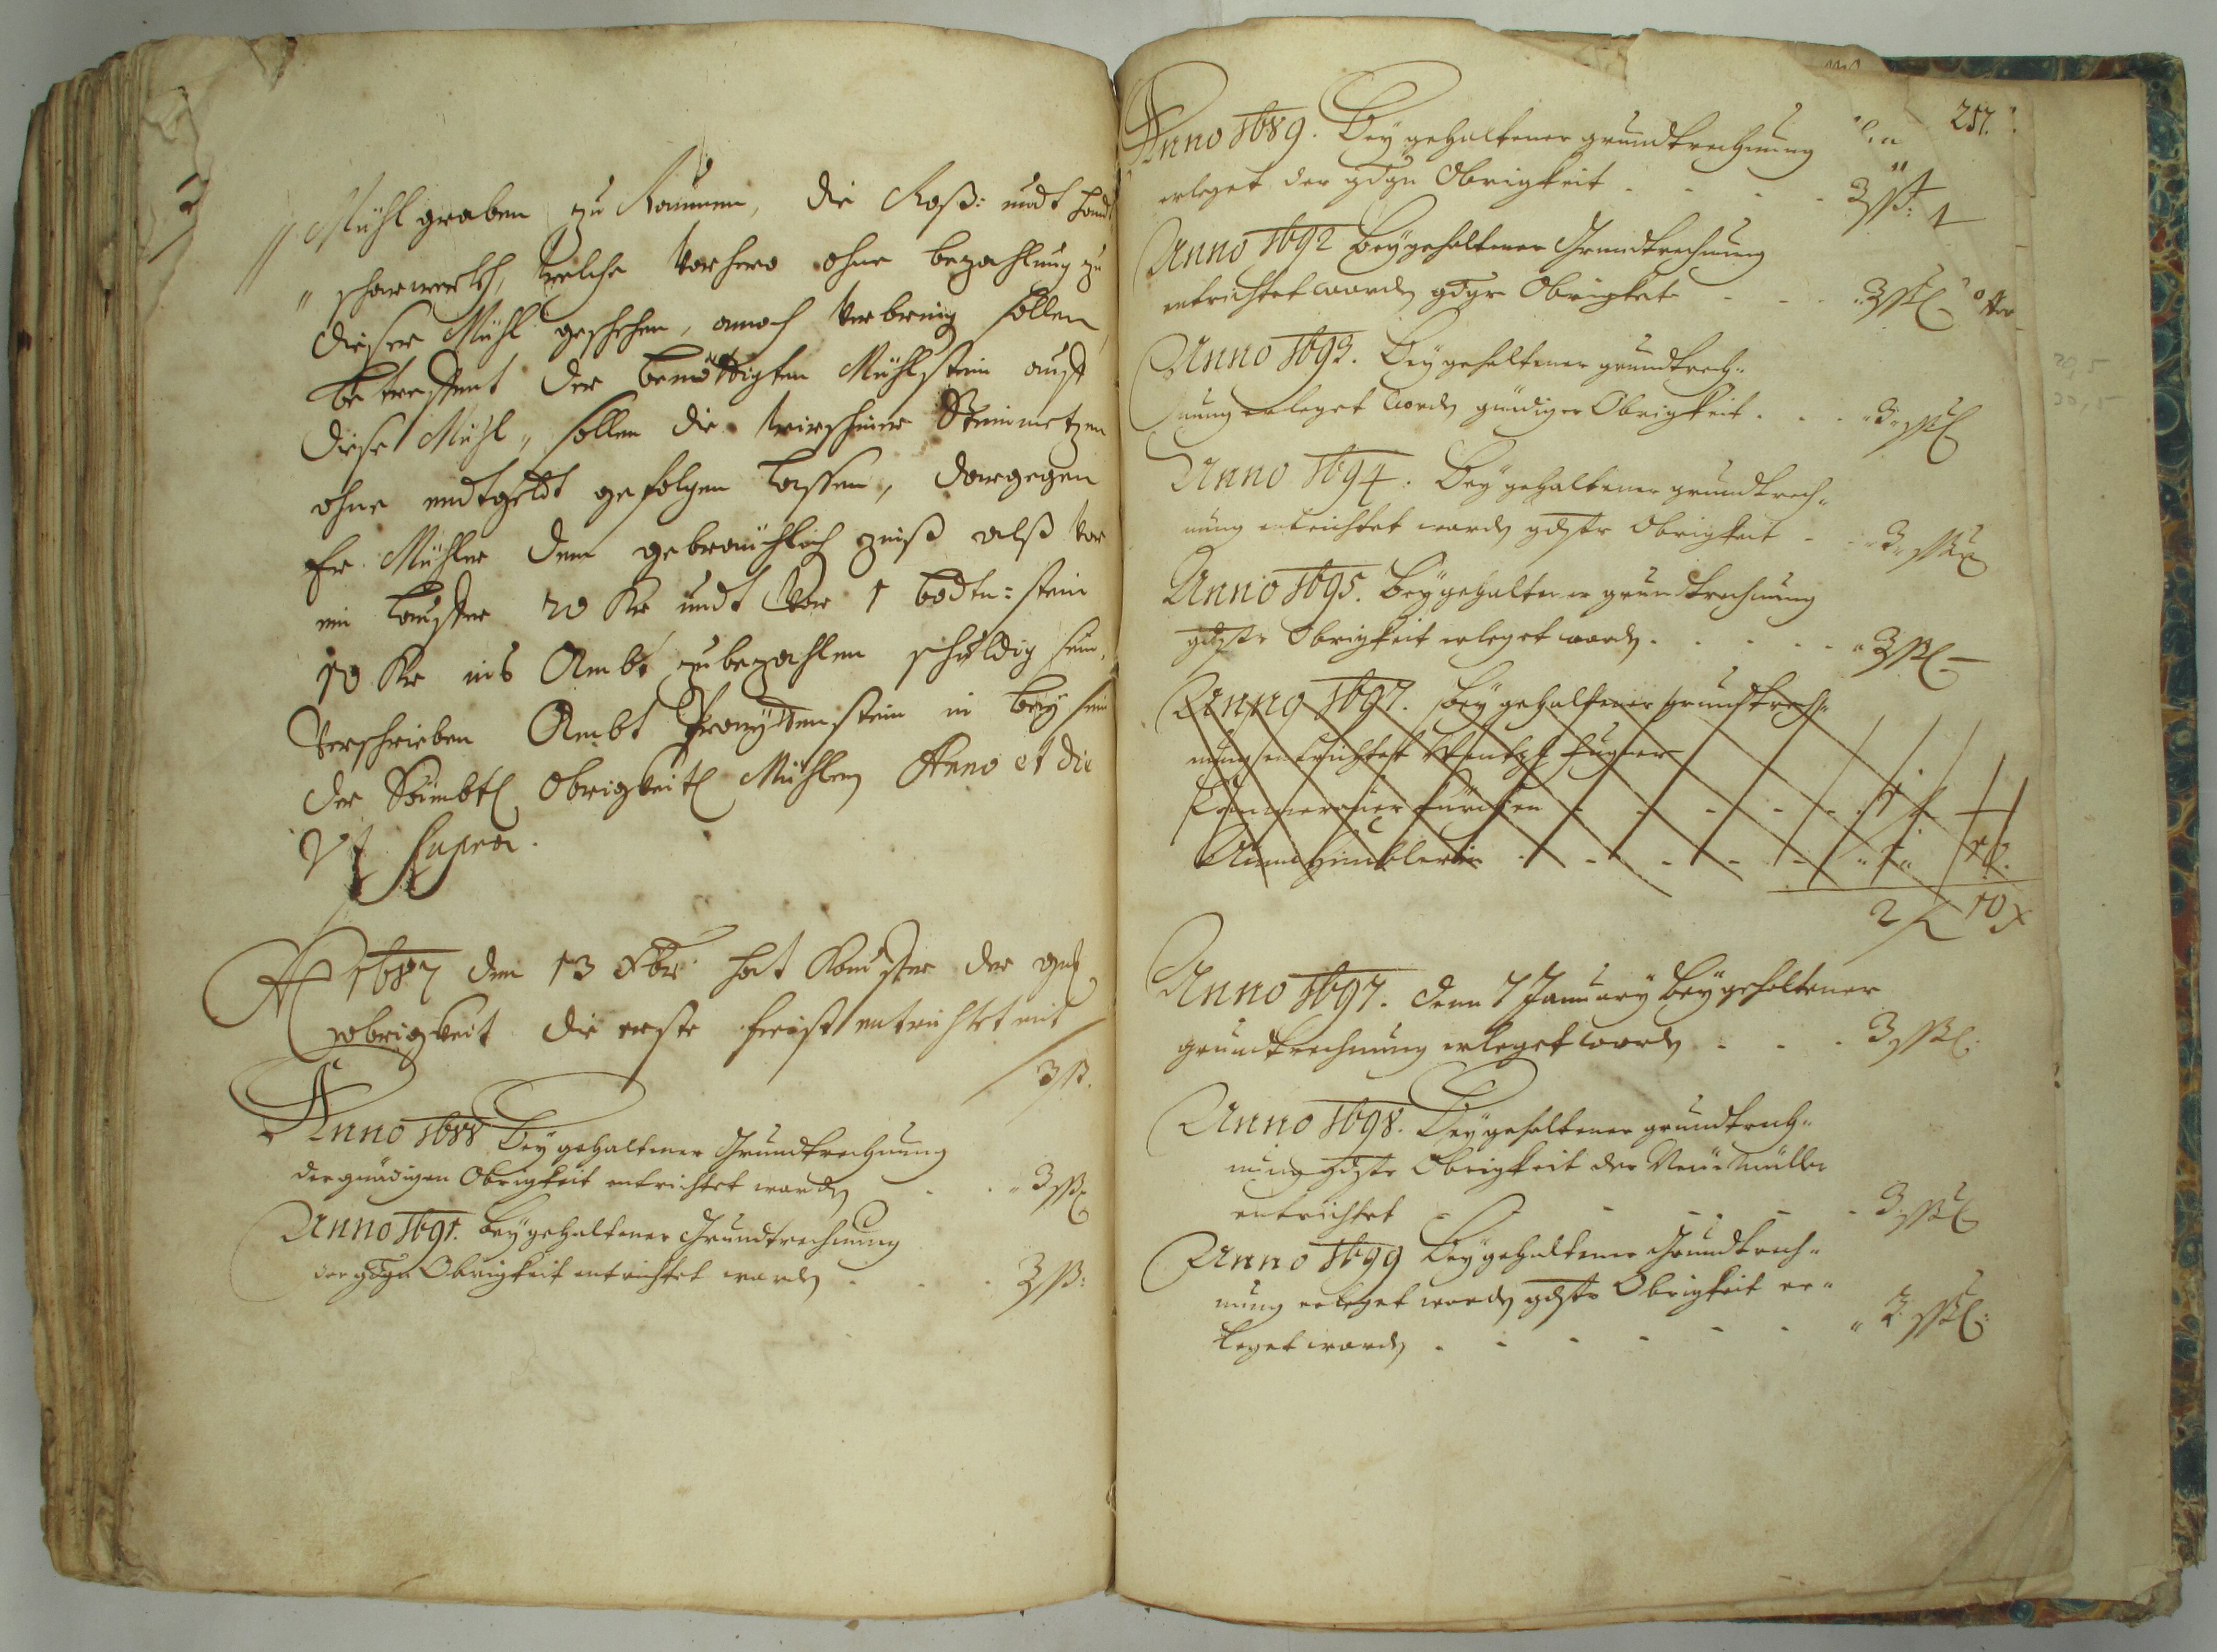 Mühlgraben zu Raumen, die Roß: undt handt
scharwerkh, welche vorhero ohne bezahlung zu
dieser Mühl geschehen, annoch verbring sollen,
betreffent der benöttigten Mühlstein auff
diese Mühl, sollen die Steinmetzen
ohne endtgeldt gefolgen lassen, dargegen
Er Mühler dem gebräuchlich zinß alß vor
ein lauffer 20 Kr undt vor 1 bodtn: stein
10 Kr ins Ambt zubezahlen schuldig sein,
Verschrieben Ambt in bey sein
der Sämbtl Obrigkeitl Mühlern Anno et die
Ut Supra.
Ao 1687 den 13 hat Kauffer der gn
obrigkeit die erste frist entrichtet mit
3 ß.
Anno 1688 Bey gehaltener Grundtrechnung
der gnädigen Obrigkeit entrichtet worden . . 3 ß
Anno 1691. Bey gehaltener Grundtrechnung
der gdgn Obrigkeit entrichtet worden . . . 3 ß:
257.
Anno 1689. Bey gehaltener grundtrechnung
erleget der gdgn Obrigkeit . . . 3 ß:
Anno 1692 Bey gehaltener Grundtrechnung
entrichtet worden gdgr Obrigkeit . . . 3 ß
Anno 1693. Bey gehaltener grundtrech-
nung erleget worden gnädiger Obrigkeit . . . 3 ß
Anno 1694. Bey gehaltener grundtrech-
nung entrichtet worden gdgstr Obrigkeit . . 3 ß
Anno 1695. Bey gehaltener grundtrechnung
gdgstr Obrigkeit erleget worden . . . . . 3 ß
Anno 1697. Bey gehaltener grundtrech-
nung entrichtet
. . . . . 1
Anna . . . . . 1
2 10 x
Anno 1697. denn 7 January Bey gehaltener
grundtrechnung erleget worden . . . 3 ß
Anno 1698. Bey gehaltener grundtrech-
nung gdgstr Obrigkeit der Neue Müller
entrichtet . . . . . . 3 ß
Anno 1699 Bey gehaltener Grundtrech-
nung erleget worden gdgstr Obrigkeit er-
leget worden . . . . . . 3 ß